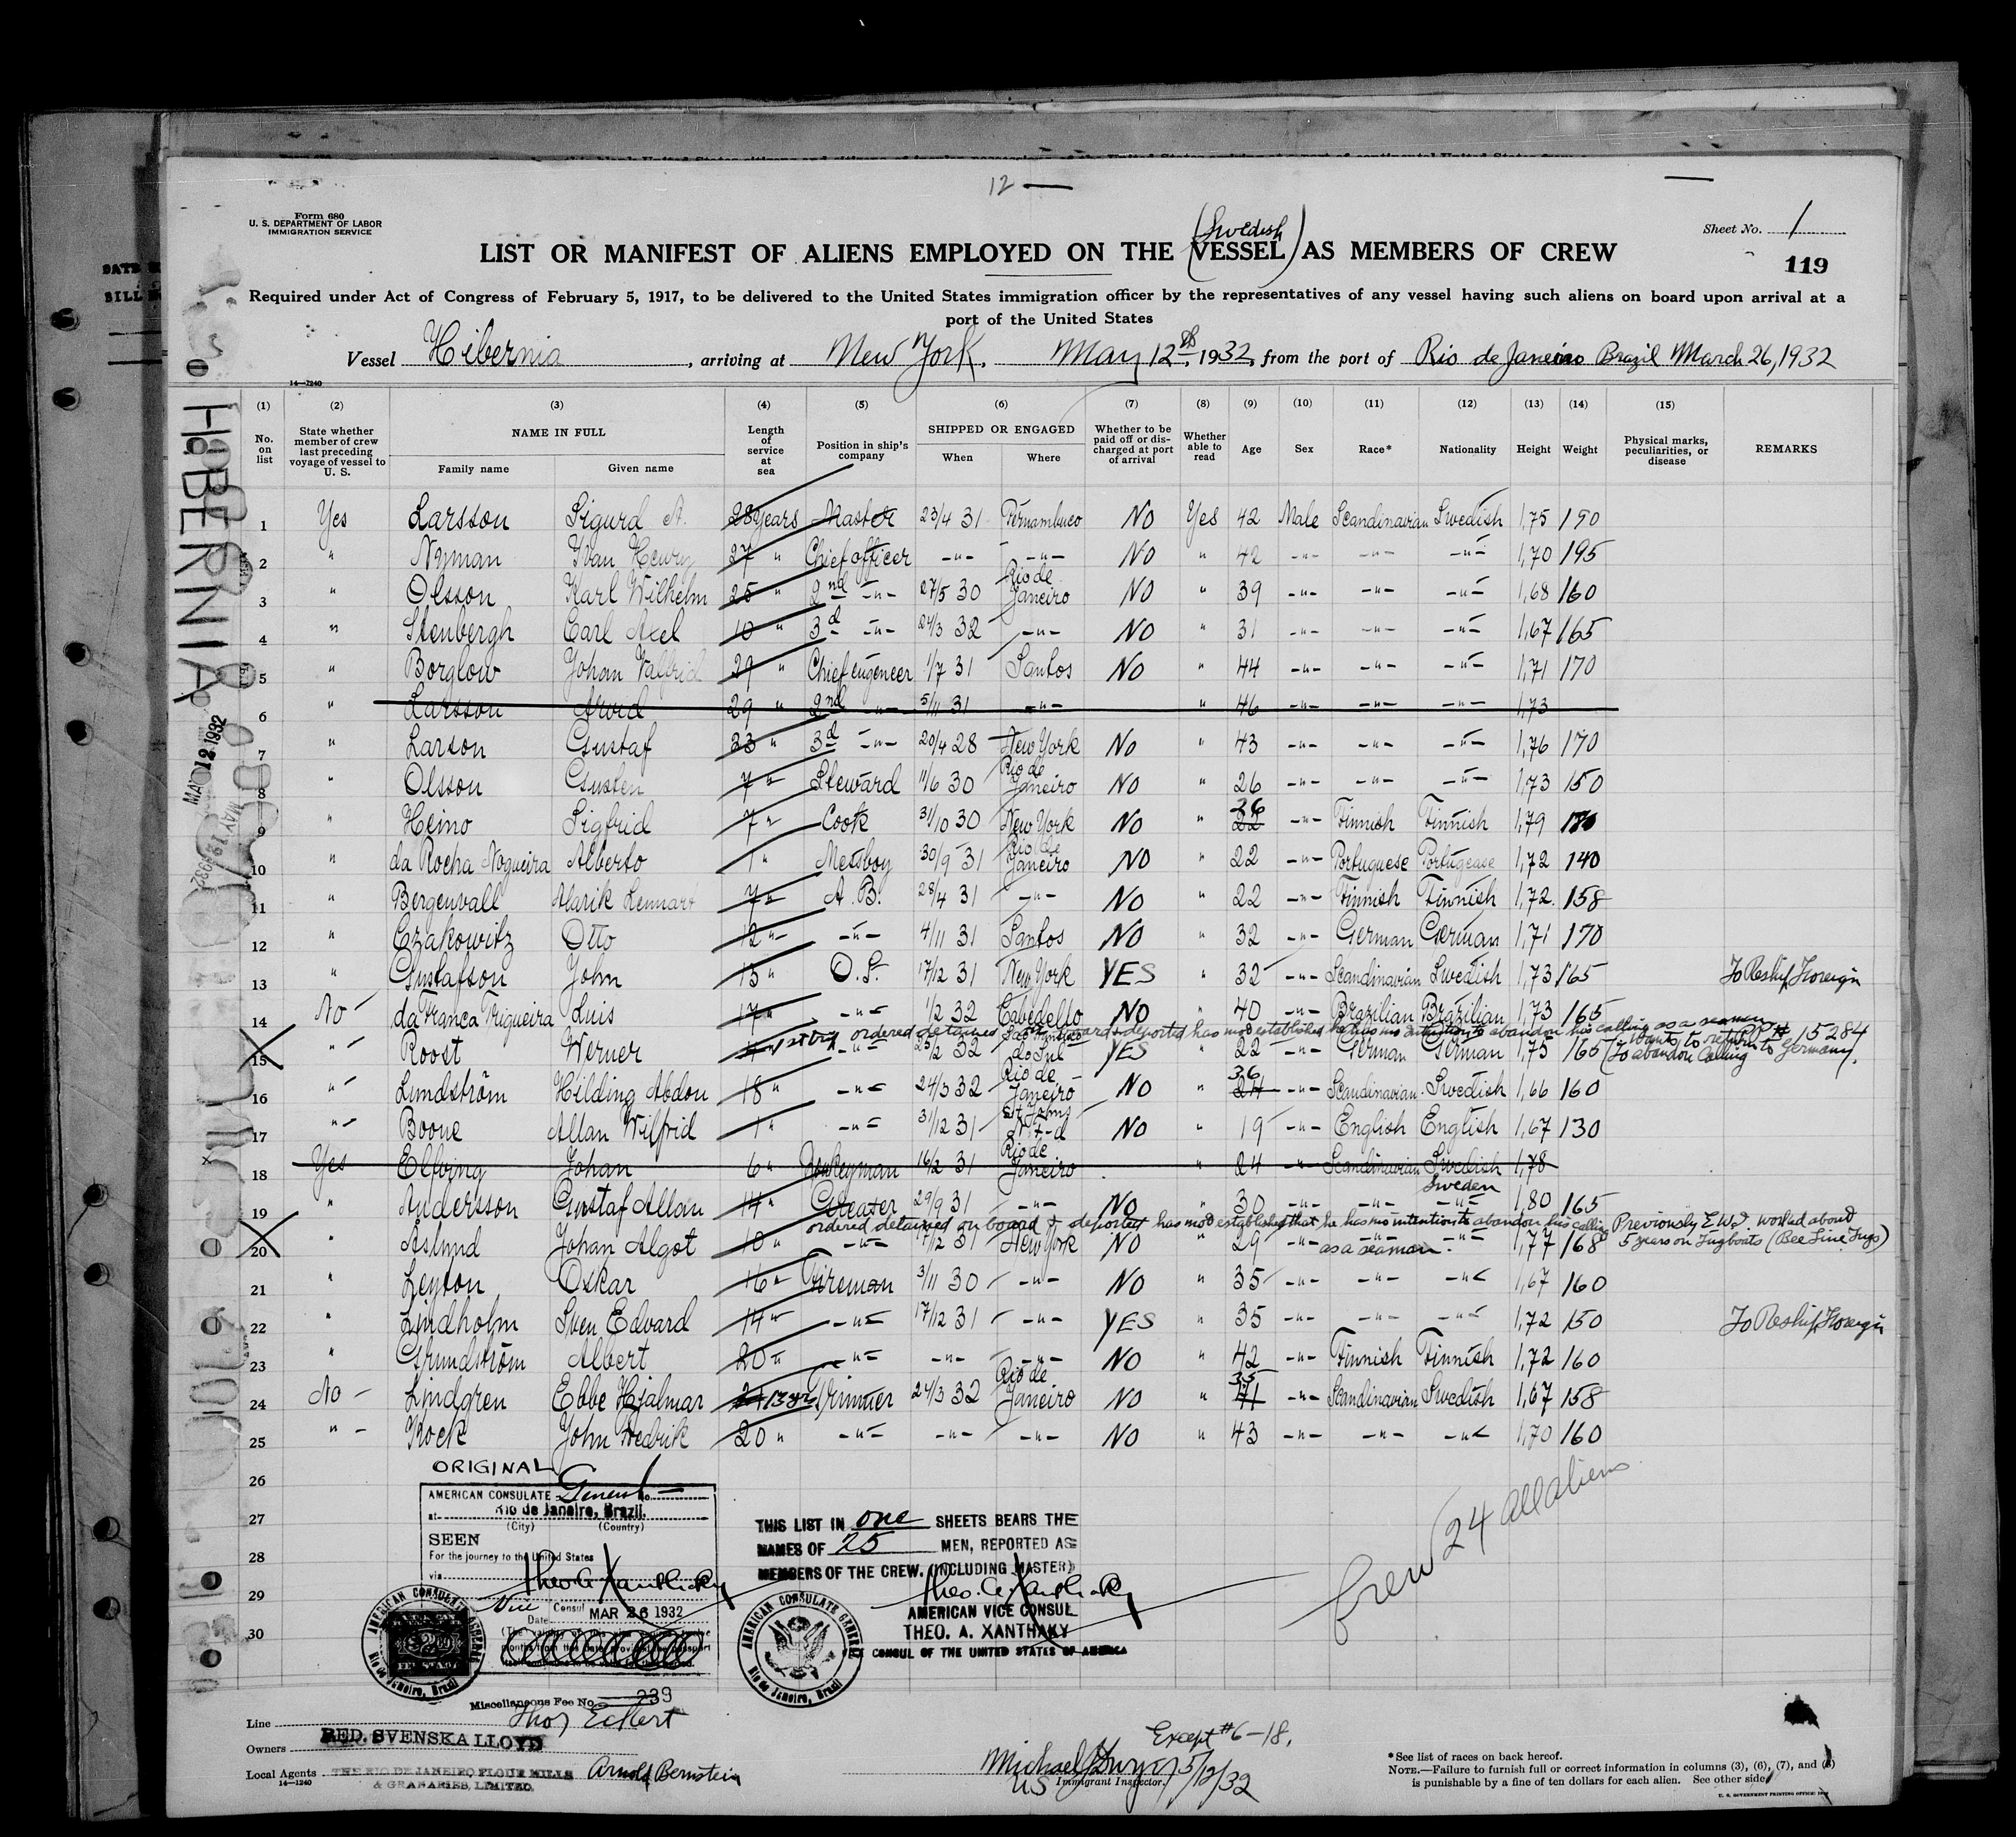 12 —
Form 680
U. S. DEPARTMENT OF LABOR
IMMIGRATION SERVICE
Sheet No. 1
(Swedish)
LIST OR MANIFEST OF ALIENS EMPLOYED ON THE VESSEL AS MEMBERS OF CREW
119
Required under Act of Congress of February 5, 1917, to be delivered to the United States immigration officer by the representatives of any vessel having such aliens on board upon arrival at a
port of the United States
Vessel Hibernia, arriving at New York, May 12th, 1932, from the port of Rio de Janeiro Brazil March 26, 1932
14—1240
(1) (2) (3) (4) (5) (6) (7) (8) (9) (10) (11) (12) (13) (14) (15)
No. on list
State whether member of crew last preceding voyage of vessel to U. S.
NAME IN FULL
Family name Given name
Length of service at sea
Position in ship's company
SHIPPED OR ENGAGED
When Where
Whether to be paid off or discharged at port of arrival
Whether able to read
Age Sex Race* Nationality Height Weight
Physical marks, peculiarities, or disease
REMARKS
HIBERNIA
MAY 12 1932
1 Yes Larsson Sigurd A. 28 Years Master 23/4 31 Pernambuco No Yes 42 Male Scandinavian Swedish 1,75 190
2 " Nyman Ivan Henry 27 " Chief officer -"- -"- No " 42 -"- -"- -"- 1,70 195
3 " Olsson Karl Wilhelm 25 " 2nd -"- 27/5 30 Rio de Janeiro No " 39 -"- -"- -"- 1,68 160
4 " Stenbergh Carl Axel 10 " 3d -"- 24/3 32 -"- No " 31 -"- -"- -"- 1,67 165
5 " Borglow Johan Valfrid 29 " Chief engeneer 1/7 31 Santos No " 44 -"- -"- -"- 1,71 170
6 " Larsson Arvid 29 " 2nd -"- 5/11 31 -"- " 46 -"- -"- -"- 1,73
7 " Larson Gustaf 23 " 3d -"- 20/4 28 New York No " 43 -"- -"- -"- 1,76 170
8 " Olsson Gusten 7 " Steward 11/6 30 Rio de Janeiro No " 26 -"- -"- -"- 1,73 150
9 " Heino Sigfrid 7 " Cook 31/10 30 New York No " 22 26 -"- Finnish Finnish 1,79
10 " da Rocha Nogueira Alberto 1 " Messboy 30/9 31 Rio de Janeiro No " 22 -"- Portuguese Portugease 1,72 140
11 " Bergenvall Alarik Lennart 7 " A. B. 28/4 31 -"- No " 22 -"- Finnish Finnish 1,72 158
12 " Czakowitz Otto 12 " -"- 4/11 31 Santos No " 32 -"- German German 1,71 170
13 " Gustafson John 15 " O. S. 17/12 31 New York YES " 32 -"- Scandinavian Swedish 1,73 165 To Reship Foreign
14 No da Franca Trigueira Luis 17 " -"- 1/2 32 Cabedello No " 40 -"- Brazilian Brazilian 1,73 165
ordered detained on board & deported has not established he has no intention to abandon his calling as a seaman
15 " Roost Werner -"- 25/2 32 do Sul YES " 22 -"- German German 1,75 165 (To abandon Calling wants to return to Germany. 15284
16 " Lundström Hilding Abdon 18 " -"- 24/3 32 Rio de Janeiro No " 24 36 -"- Scandinavian Swedish 1,66 160
17 " Boone Allan Wilfrid 1 " -"- 31/12 31 St Johns N.f-d No " 19 -"- English English 1,67 130
18 Yes Elfving Johan 6 " Donkeyman 16/2 31 Rio de Janeiro " 24 -"- Scandinavian Swedish 1,78
Sweden
19 " Andersson Gustaf Allan 14 " Greaser 29/9 31 -"- No " 30 -"- -"- -"- 1,80 165
ordered detained on board & deported has not established that he has no intention to abandon his calling as a seaman. Previously E.W.I. worked about 5 years on Tugboats (Bee Line Tugs)
20 " Åslund Johan Algot 10 " -"- 17/12 31 New York No " 29 -"- -"- -"- 1,77 168
21 " Lenton Oskar 16 " Fireman 3/11 30 -"- No " 35 -"- -"- -"- 1,67 160
22 " Lindholm Sven Edvard 14 " -"- 17/12 31 -"- YES " 35 -"- -"- -"- 1,72 150 To Reship Foreign
23 " Grundström Albert 20 " -"- -"- -"- No " 42 -"- Finnish Finnish 1,72 160
24 No Lindgren Ebbe Hjalmar Trimmer 24/3 32 Rio de Janeiro No " 35 -"- Scandinavian Swedish 1,67 158
25 " Kock John Fredrik 20 " -"- -"- -"- No " 43 -"- -"- -"- 1,70 160
26
27
28
29
30
ORIGINAL
AMERICAN CONSULATE General No.
at Rio de Janeiro, Brazil.
(City) (Country)
SEEN
For the journey to the United States
via
Theo. A. Xanthaky
Vice Consul
Date MAR 26 1932
AMERICAN CONSULATE GENERAL
Rio de Janeiro, Brazil
THIS LIST IN one SHEETS BEARS THE
NAMES OF 25 MEN, REPORTED AS
MEMBERS OF THE CREW. (INCLUDING MASTER)
Theo. A. Xanthaky
AMERICAN VICE CONSUL
THEO. A. XANTHAKY
CONSUL OF THE UNITED STATES OF AMERICA
AMERICAN CONSULATE GENERAL
Rio de Janeiro, Brazil
Crew 24 all aliens
Miscellaneous Fee No. 239
Line Thor Eckert
Owners RED. SVENSKA LLOYD
Local Agents THE RIO DE JANEIRO FLOUR MILLS & GRANARIES, LIMITED. Arnold Bernstein
14—1240
Except #6-18.
Michael J Dwyer 5/12/32
US Immigrant Inspector.
*See list of races on back hereof.
NOTE.—Failure to furnish full or correct information in columns (3), (6), (7), and (8)
is punishable by a fine of ten dollars for each alien. See other side
U. S. GOVERNMENT PRINTING OFFICE